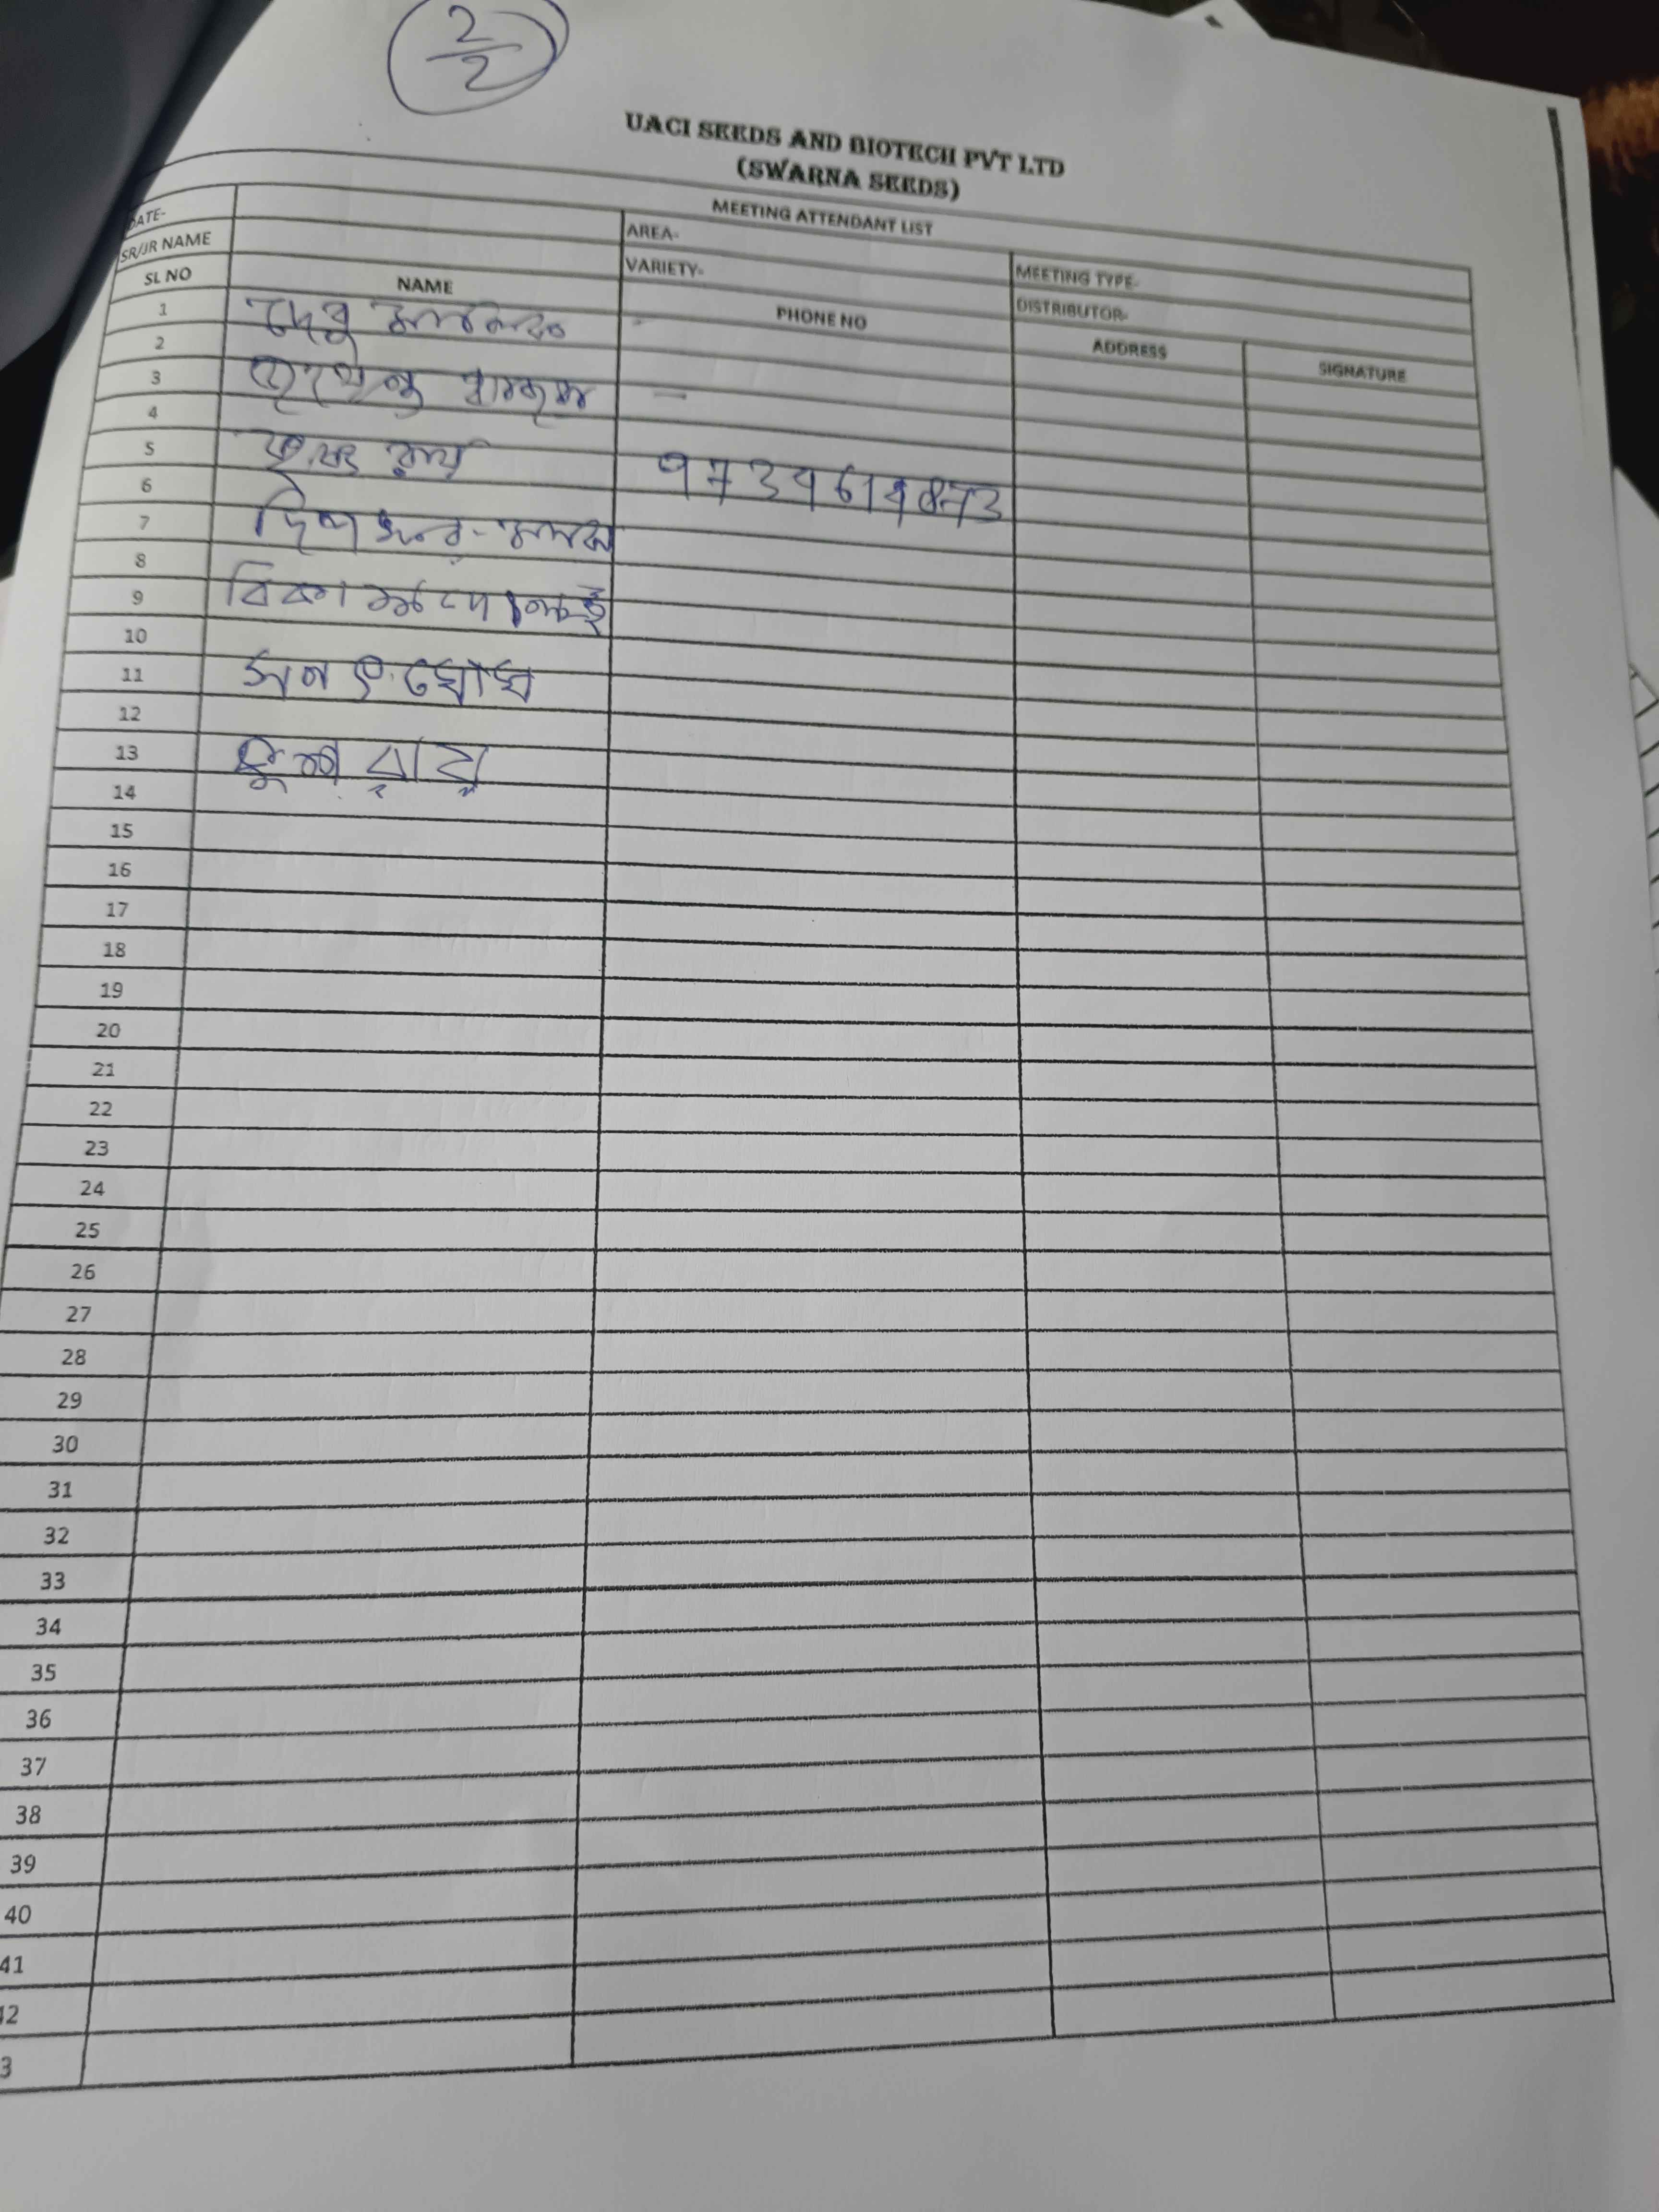 2/2
UACI SEEDS AND BIOTECH PVT LTD
(SWARNA SEEDS)
MEETING ATTENDANT LIST
DATE- AREA- MEETING TYPE-
SR/JR NAME VARIETY- DISTRIBUTOR-
SL NO NAME PHONE NO ADDRESS SIGNATURE
1
2
3
4
5
6
7
8
9
10
11 সনৎ ঘোষ
12
13 রায়
14
15
16
17
18
19
20
21
22
23
24
25
26
27
28
29
30
31
32
33
34
35
36
37
38
39
40
41
12
3